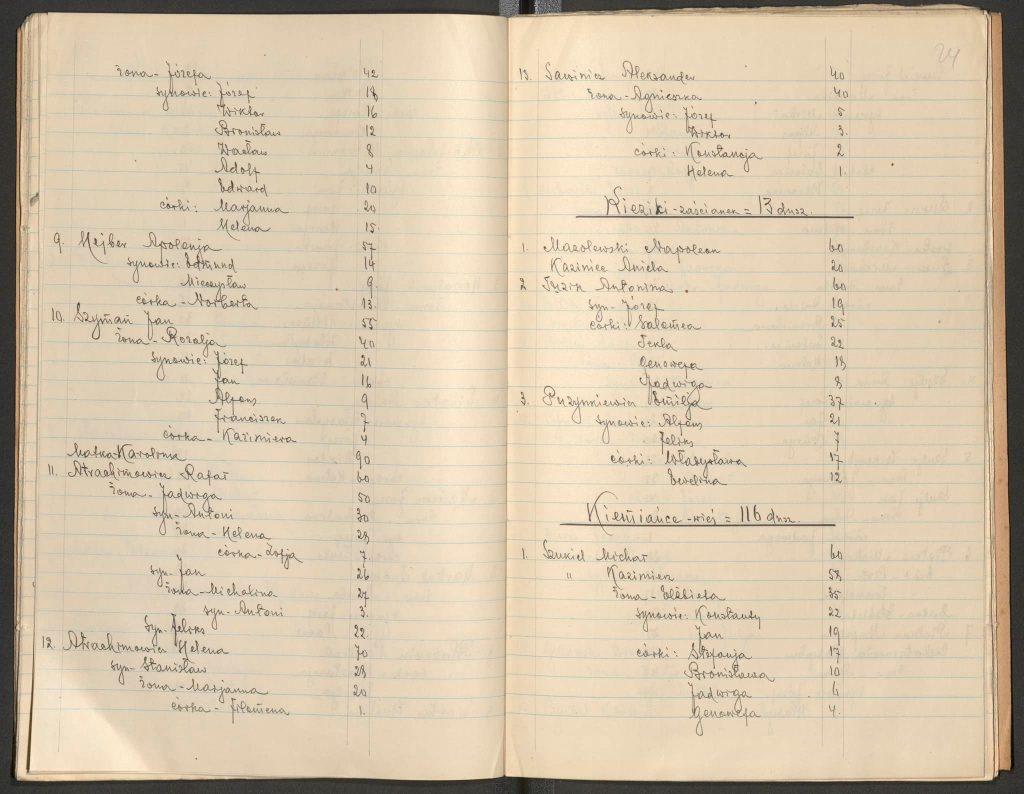 żona - Józefa 42
synowie: Józef 18
Wiktor 16
Bronisław 12
Wacław 8
Adolf 4
Edward 10
córki: Marjanna 20
Helena 15
9. Hejber Apolonja 57
synowie: Edmund 14
Mieczysław 9
córka - Norberta 13
10. Szymań Jan 55
żona - Rozalja 40
synowie: Józef 21
Jan 16
Alfons 9
Franciszek 7
córka - Kazimiera 4
Matka Karolina 90
11. Atrachimowicz Rafał 60
żona - Jadwiga 50
syn - Antoni 30
żona - Helena 28
córka - Zofja 7
syn - Jan 26
żona - Michalina 27
syn - Antoni 3
syn - Feliks 22
12. Atrachimowicz Helena 70
syn - Stanisław 28
żona - Marjanna 20
córka - Filomena 1
24
13. Sawinicz Aleksander 40
żona - Agnieszka 40
synowie: Józef 5
Wiktor 3
córki: Konstancja 2
Helena 1
Kieziki - zaścianek = 13 dusz.
1. Mazolewski Napoleon 60
Kaziniec Aniela 20
2 Antonina 60
syn - Józef 19
córki: Salomea 25
Tekla 22
Genowefa 18
Jadwiga 8
3. Puzynkiewicz Emilja 37
synowie: Alfons 21
Feliks 7
córki: Władysława 17
Ewelina 12
Kiemiańce - wieś = 116 dusz.
1. Szukiel Michał 60
" Kazimierz 58
żona - Elżbieta 35
synowie: Konstanty 22
Jan 19
córki: Stefanja 17
Bronisława 10
Jadwiga 6
Genowefa 4